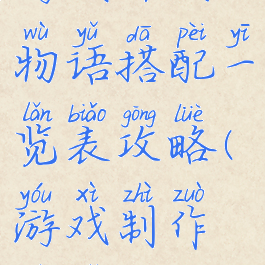 wù yǔ dā pèi yī
物语搭配一
lǎn biǎo gōng lüè
览表攻略(
yóu xì zhì zuò
游戏制作